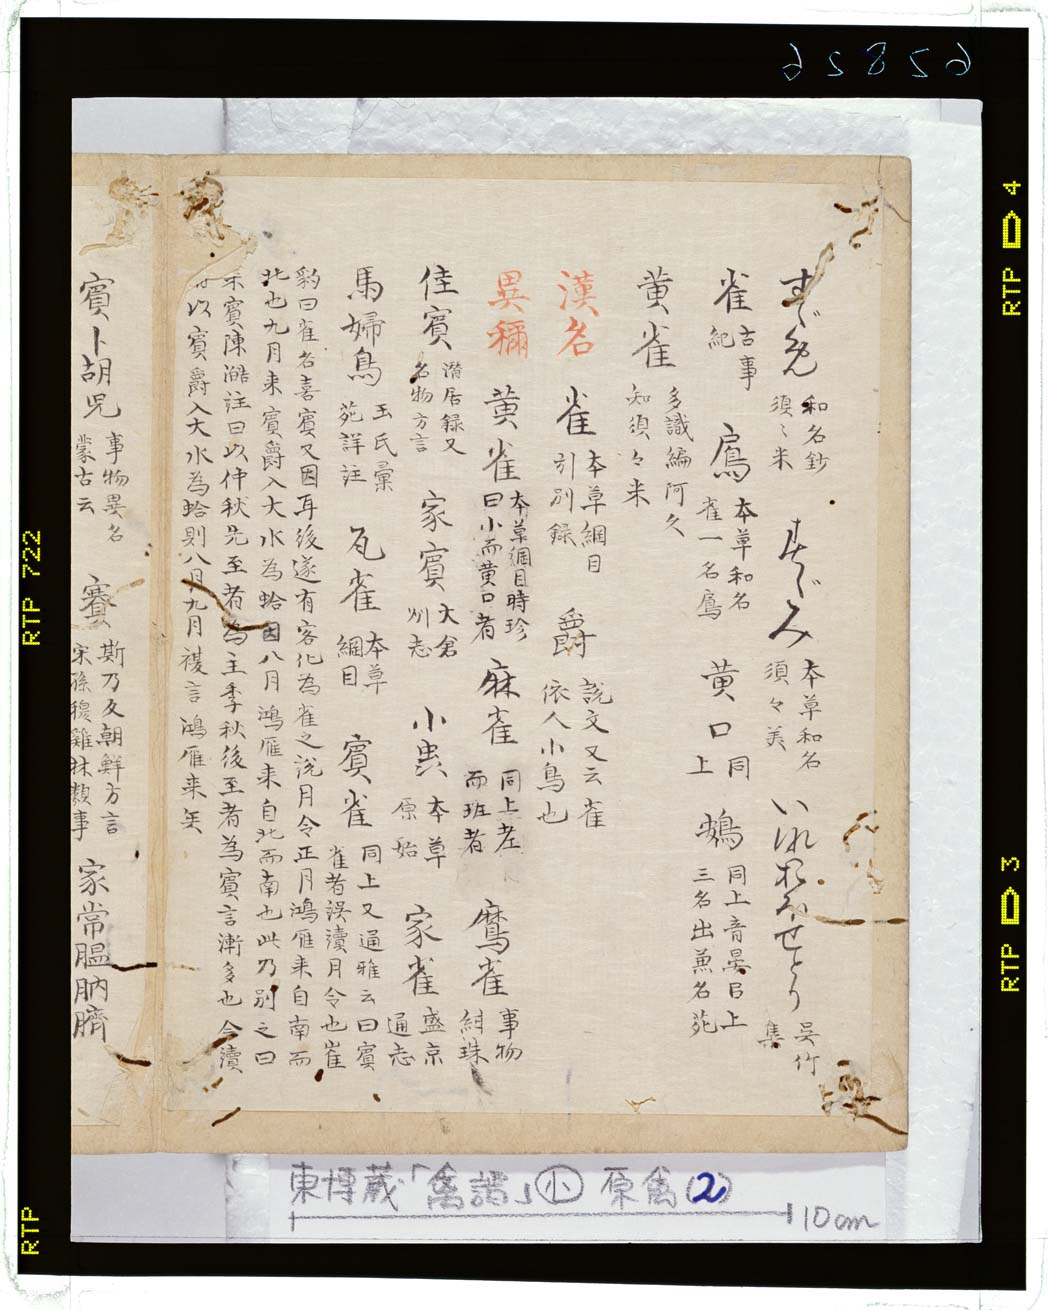 すゞめ 和名鈔 須〻米 すゞみ 本草和名 須々美 いはれおはせとり 呉竹集
雀 古事紀 鳸 本草和名 雀一名鳸 黄口 同上 鷃 同上音晏已上三名出兼名苑
黄雀 多識編阿久知須々米
漢名 雀 本草綱目引別録 爵 説文又云雀依人小鳥也
異稱 黄雀 本草綱目時珍曰小而黄口者 麻雀 同上老而班者 鷹雀 事物紺珠
佳賓 潜居録又名物方言 家賓 大倉州志 小虫 本草原始 家雀 盛京通志
馬婦鳥 王氏彙苑詳註 瓦雀 本草綱目 賓雀 同上又通雅云曰賓雀者誤瀆月令也崔
豹曰雀名喜賓又因耳後遂有客化為雀之説月令正月鴻雁来自南而
北也九月来賓爵入大水為蛤因八月鴻雁来自北而南也此乃別之曰
来賓陳澔註曰以仲秋先至者為主季秋後至者為賓言漸多也今瀆
以賓爵入大水為蛤則八月九月複言鴻雁来矣
賓卜胡児 事物異名蒙古云 賽 斯乃及朝鮮方言宋孫穆雞林類事 家常膃肭臍
東博蔵「禽譜」小 原禽(2)
10cm
65826
RTP 4
RTP 3
RTP 722
RTP